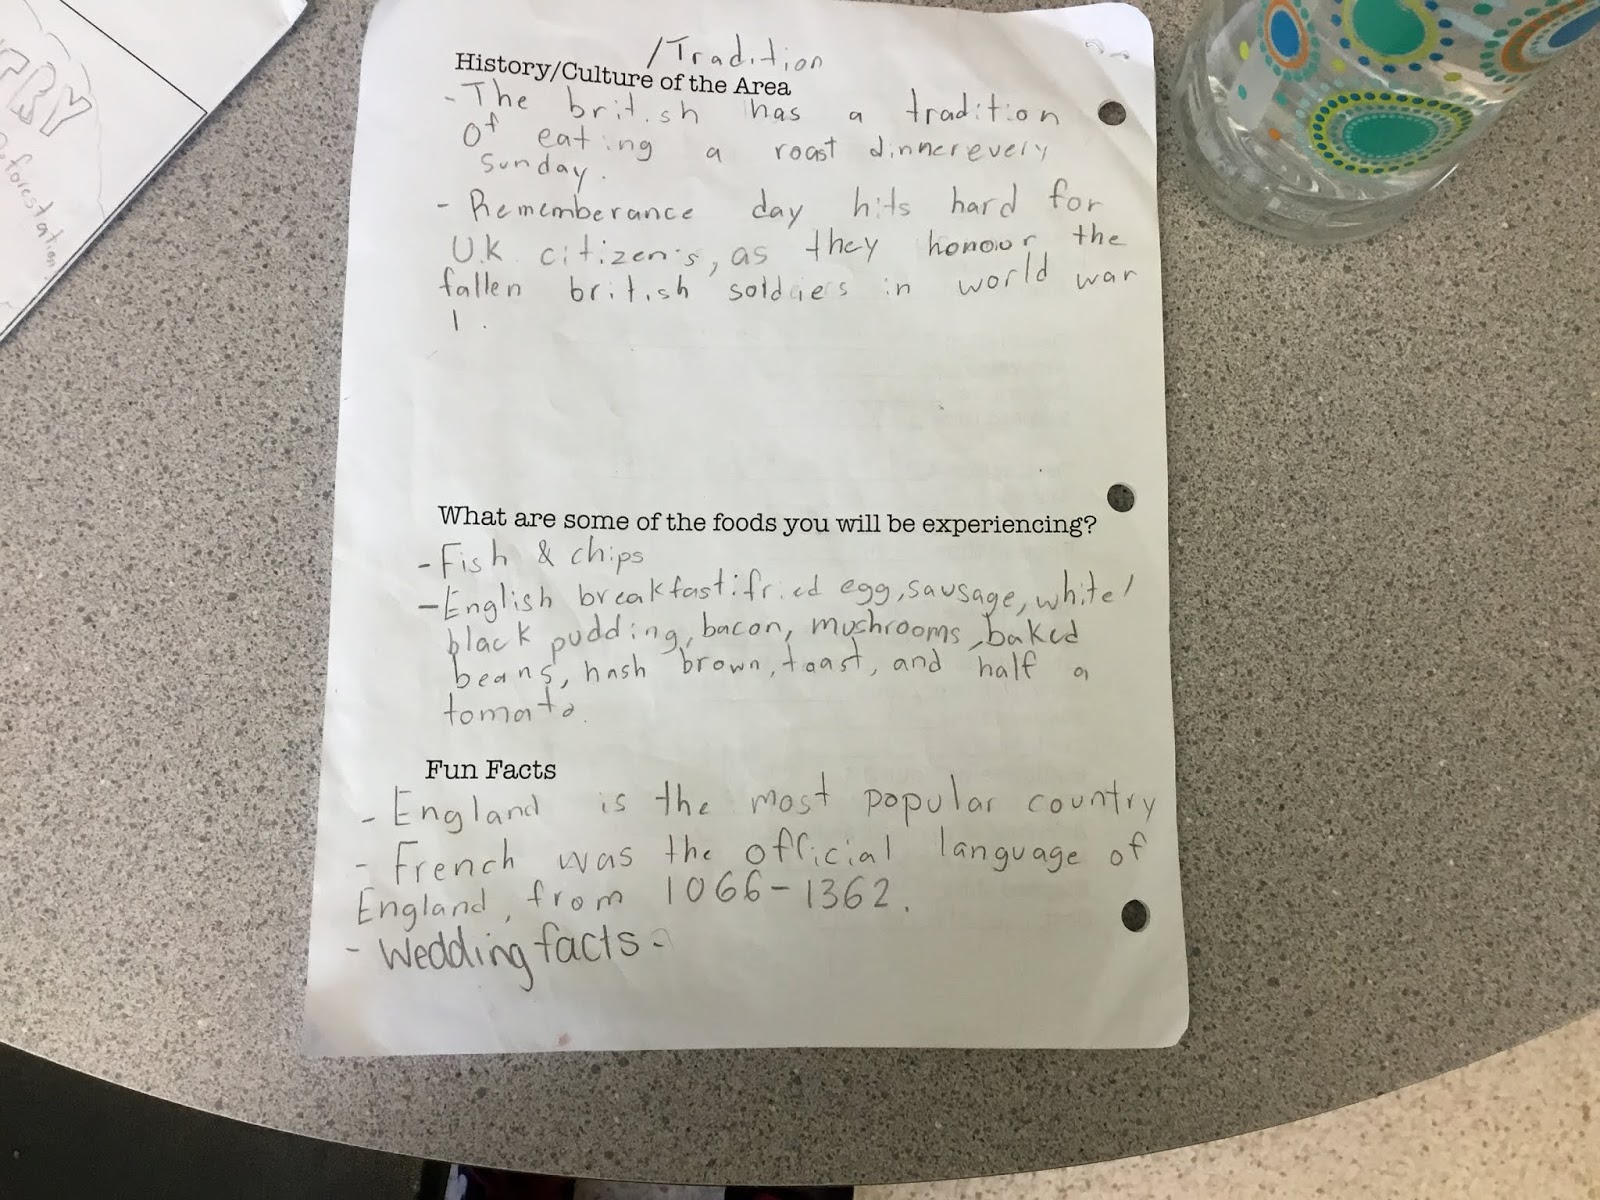 /Tradition
History/Culture of the Area
- The british has a tradition
of eating a roast dinner every
Sunday.
- Rememberance day hits hard for
U.K citizen's, as they honour the
fallen british soldiers in world war
1.
What are some of the foods you will be experiencing?
- Fish & chips
- English breakfast: fried egg, sausage, white/
black pudding, bacon, mushrooms, baked
beans, hash brown, toast, and half a
tomato.
Fun Facts
- England is the most popular country
- French was the official language of
England, from 1066-1362.
- Wedding facts -
TRY
forestation